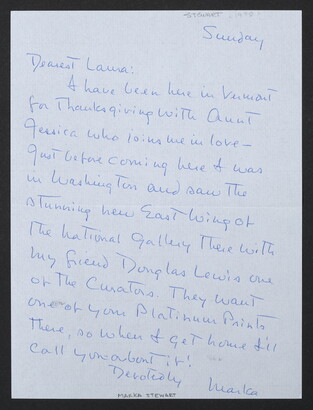 STEWART, 1978
Sunday
Dearest Laura:
I have been here in Vermont
for Thanksgiving with Aunt
Jessica who joins me in love—
Just before coming here I was
in Washington and saw the
stunning new East Wing of
the National Gallery there with
my friend Douglas Lewis one
of the Curators. They want
one of your Platinum Prints
there, so when I get home I'll
call you about it!
Devotedly Marka
MARKA STEWART